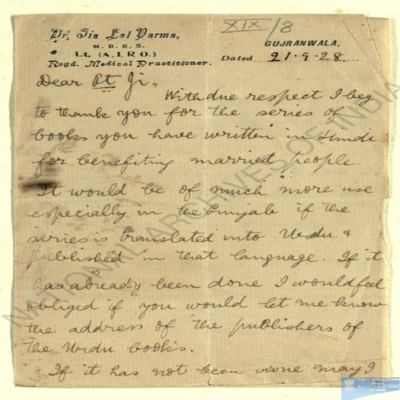 Dr. Jia Lal Varma,
M. B. B. S.
Lt. (A. I. R. O.)
Regd. Medical Practitioner.
XIX/8
GUJRANWALA.
Dated 21-9-28
Dear Pt Ji,
With due respect I beg
to thank you for the series of
books you have written in Hindi
for benefiting married people
It would be of much more use
especially in the Punjab if the
series is translated into Urdu &
published in that language. If it
has already been done I would feel
obliged if you would let me know
the address of the publishers of
the Urdu books.
If it has not been done may I
NATIONAL ARCHIVES OF INDIA